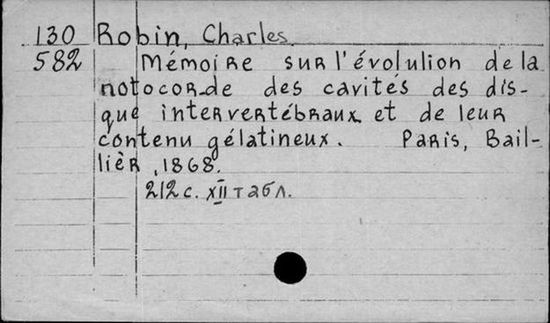 130 Robin, Charles.
582 Mémoire sur l'évolution de la
notocorde des cavités des dis-
que intervertébraux et de leur
contenu gélatineux. Paris, Bail-
lièr, 1868.
212 с. XII табл.